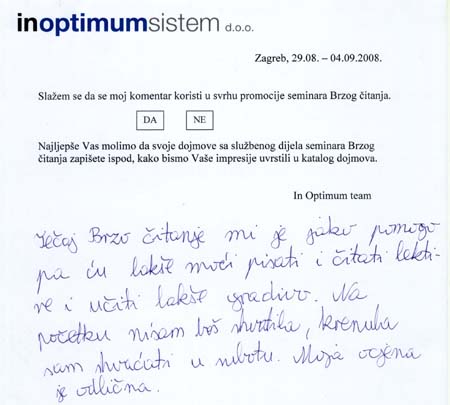 inoptimumsistem d.o.o.
Zagreb, 29.08. – 04.09.2008.
Slažem se da se moj komentar koristi u svrhu promocije seminara Brzog čitanja.
DA NE
Najljepše Vas molimo da svoje dojmove sa službenog dijela seminara Brzog
čitanja zapišete ispod, kako bismo Vaše impresije uvrstili u katalog dojmova.
In Optimum team
Tečaj Brzo čitanje mi je jako pomogo
pa ću lakše moći pisati i čitati lekti-
re i učiti lakše gradivo. Na
početku nisam baš shvatila, krenula
sam shvaćati u subotu. Moja ocjena
je odlična.